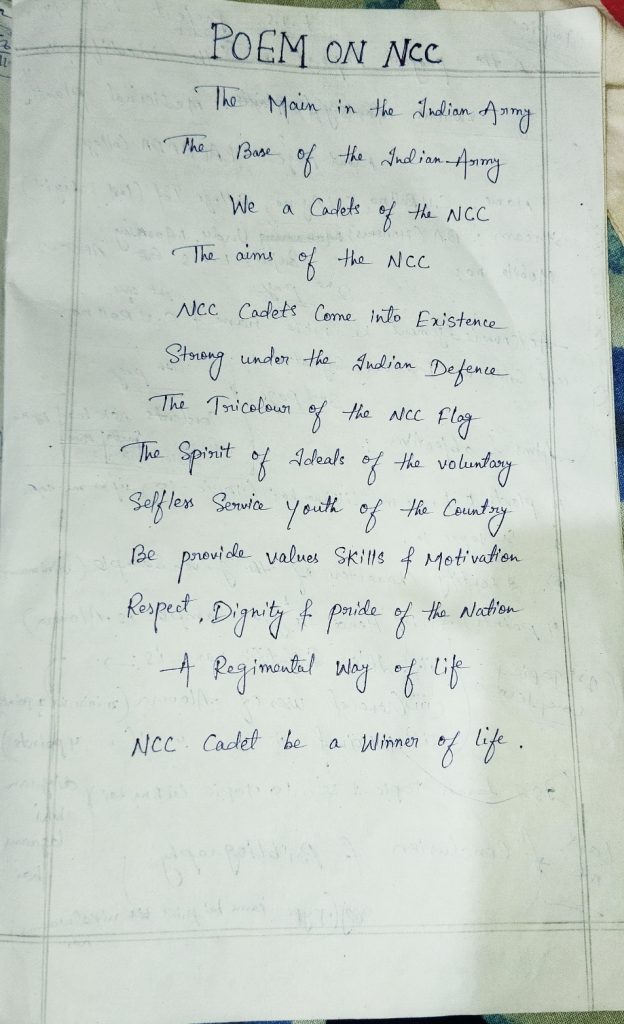 POEM ON NCC
The Main in the Indian Army
The Base of the Indian Army
We a Cadets of the NCC
The aims of the NCC
NCC Cadets Come into Existence
Strong under the Indian Defence
The Tricolour of the NCC Flag
The Spirit of Ideals of the voluntary
Selfless Service youth of the Country
Be provide values Skills & Motivation
Respect, Dignity & pride of the Nation
A Regimental Way of life
NCC Cadet be a Winner of life.